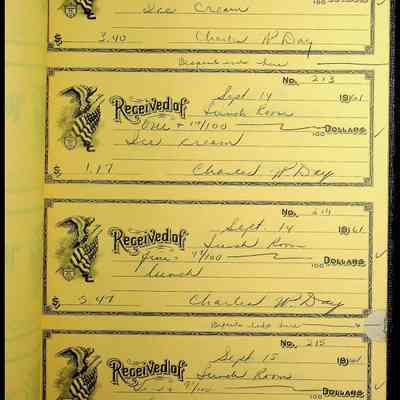 Ice Cream
100 Dollars
$ 3.40 Charles W. Day
Deposit made here
No. 213
Sept. 14 1961
Received of Lunch Room
One + 17/100 Dollars
100
Ice Cream
$ 1.17 Charles W. Day
No. 214
Sept. 14 1961
Received of Lunch Room
Five + 47/100 Dollars
100
Lunch
$ 5.47 Charles W. Day
Deposit made here
No. 215
Sept. 15 1961
Received of Lunch Room
/100 Dollars
100